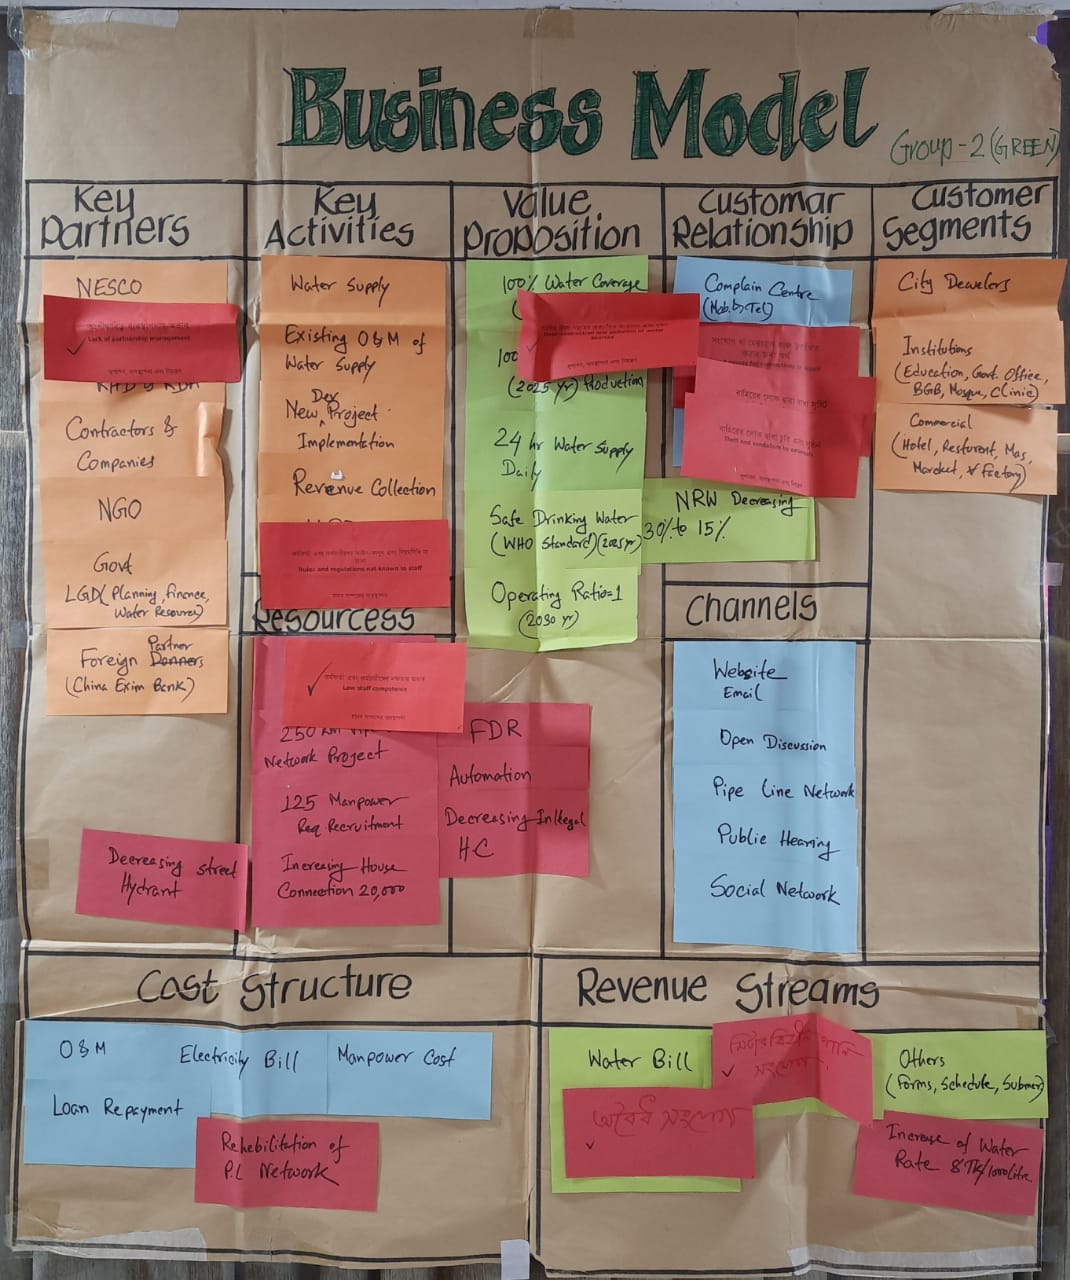 Business Model
Group-2 (GREEN)
Key
Partners
NESCO
Lack of partnership management
Contractors &
Companies
NGO
Govt
LGD( Planning, finance,
Water Resource)
Partner
Foreign Donners
(China Exim Bank)
Decreasing street
Hydrant
Key
Activities
Water Supply
Existing O&M of
Water Supply
Dev
New Project
Implementation
Revenue Collection
Rules and regulations not known to staff
Resourcess
Low staff competence
250 km
Network Project
125 Manpower
Req Recruitment
Increasing House
Connection 20,000
FDR
Automation
Decreasing Inllegal
HC
Value
Proposition
100% Water Coverage
(2025 yr) Production
24 hr Water Supply
Daily
Safe Drinking Water
(WHO Standard) (2025 yr)
Operating Ratio=1
(2030 yr)
Customar
Relationship
Complain Centre
(Mob. Tel)
NRW Decreasing
30% to 15%
Channels
Website
Email
Open Discussion
Pipe Line Network
Public Hearing
Social Network
Customer
Segments
City Dewelers
Institutions
(Education, Govt. Office,
BGB, Mosque, Clinic)
Commercial
(Hotel, Resturent, Mas,
Marcket, & Factory)
Cost Structure
O&M
Electricity Bill
Manpower Cost
Loan Repayment
Rehebilitation of
P.L Network
Revenue Streams
Water Bill
মিটারবিহীন পানি
সংযোগ।
অবৈধ সংযোগ
Others
(Forms, Schedule, Submer)
Increase of Water
Rate 8 Tk/1000 Litre